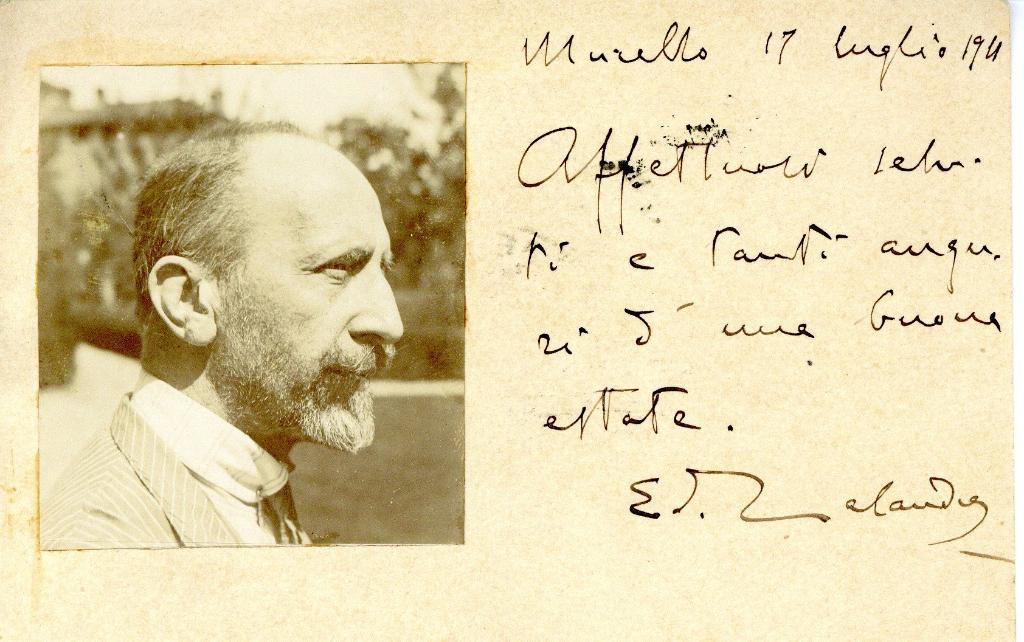 Murello 17 luglio 1911
Affettuosi salu-
ti e tanti augu-
ri d'una buona
estate.
Ed. Calandra